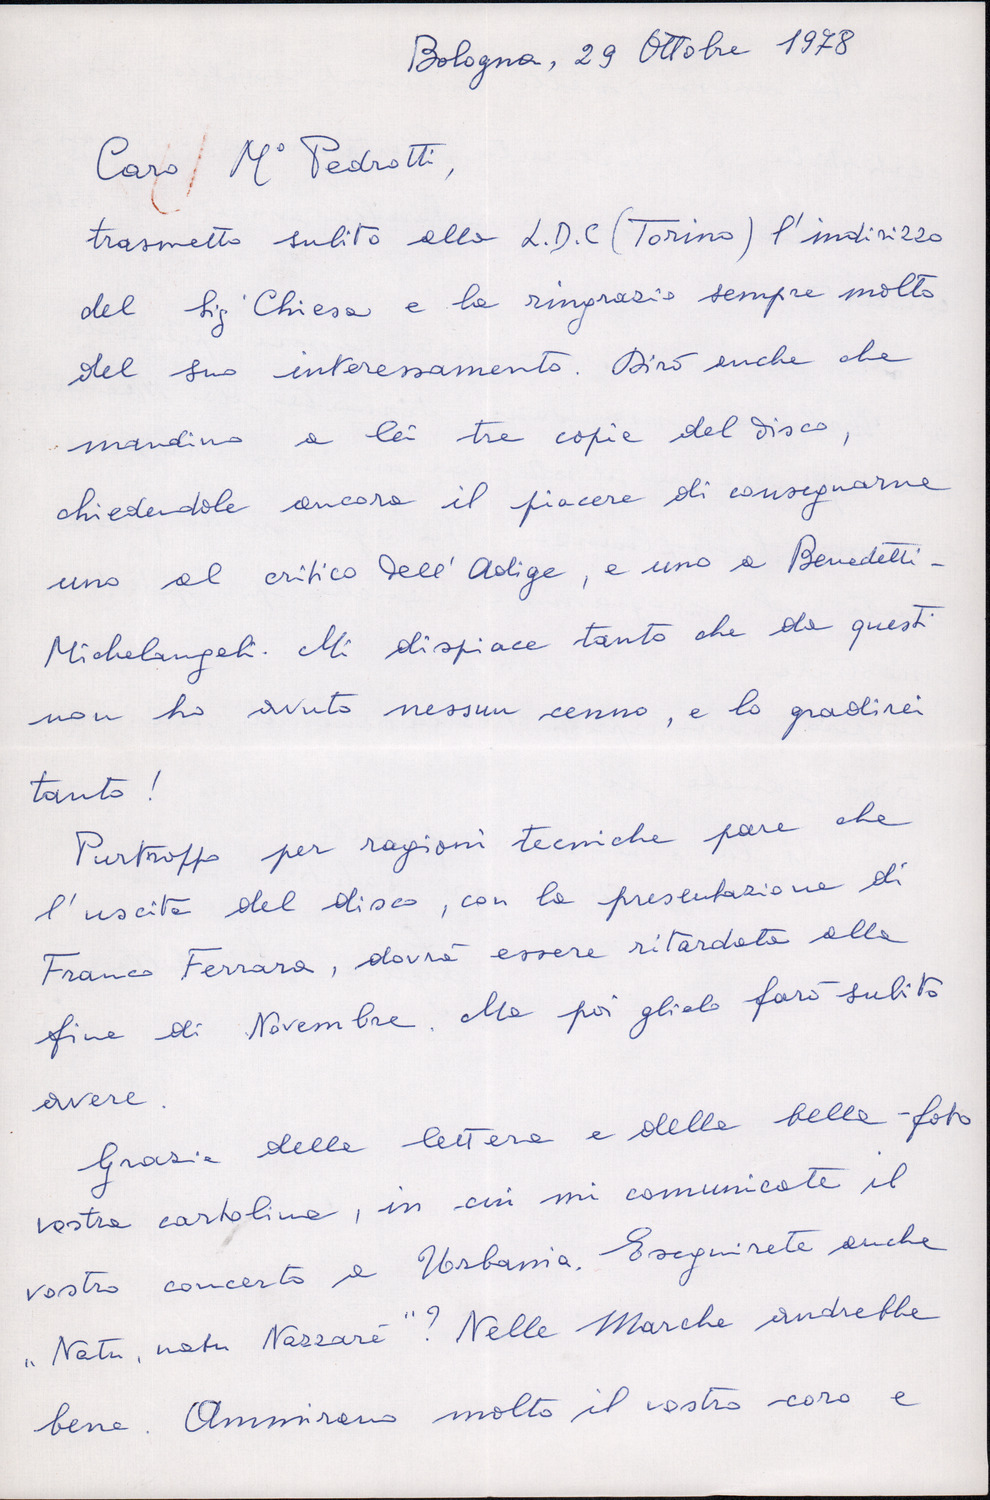 Bologna, 29 Ottobre 1978
Caro M° Pedrotti,
trasmetto subito alla L.D.C (Torino) l'indirizzo
del Sig Chiesa e la ringrazio sempre molto
del suo interessamento. Dirò anche che
mandino a lei tre copie del disco,
chiedendole ancora il piacere di consegnarne
uno al critico dell'Adige, e uno a Benedetti-
Michelangeli. Mi dispiace tanto che da questi
non ho avuto nessun cenno, e lo gradirei
tanto!
Purtroppo per ragioni tecniche pare che
l'uscita del disco, con la presentazione di
Franco Ferrara, dovrà essere ritardata alla
fine di Novembre. Ma poi glielo farò subito
avere.
Grazie della lettera e della bella foto
vostra cartolina, in cui mi comunicate il
vostro concerto a Urbania. Eseguirete anche
"Natu, natu Nazzarè"? Nelle Marche andrebbe
bene. Ammirano molto il vostro coro e